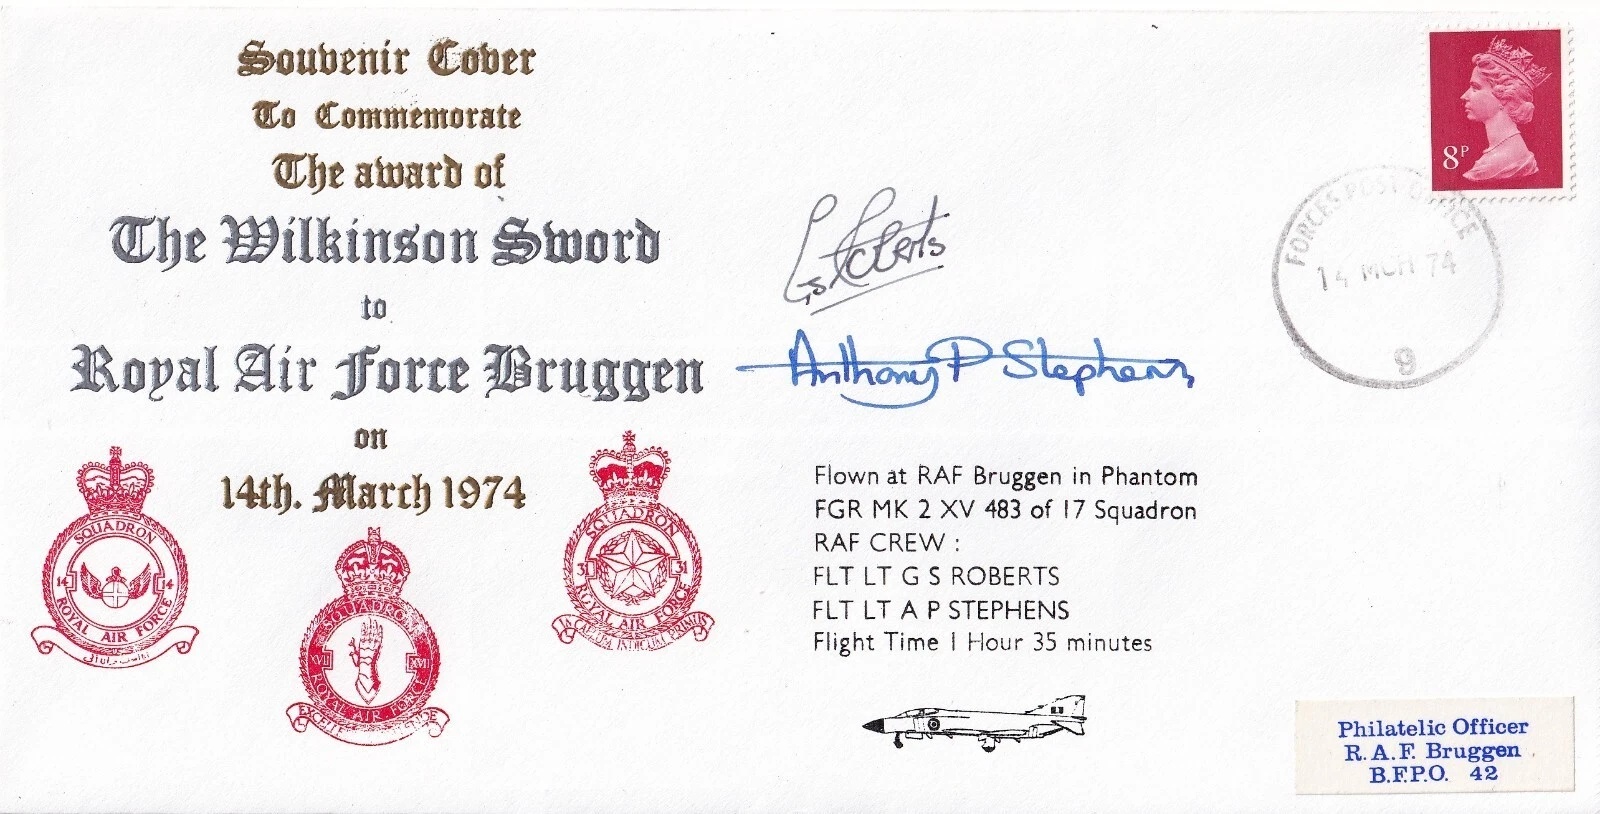 Souvenir Cover
To Commemorate
The award of
The Wilkinson Sword
to
Royal Air Force Bruggen
on
14th. March 1974
SQUADRON
14 14
ROYAL AIR FORCE
SQUADRON
XVII XVII
ROYAL AIR FORCE
SQUADRON
31 31
ROYAL AIR FORCE
IN CAELUM INDICUM PRIMUS
8P
FORCES POST OFFICE
14 MCH 74
9
G S Roberts
Anthony P Stephens
Flown at RAF Bruggen in Phantom
FGR MK 2 XV 483 of 17 Squadron
RAF CREW :
FLT LT G S ROBERTS
FLT LT A P STEPHENS
Flight Time 1 Hour 35 minutes
Philatelic Officer
R.A.F. Bruggen
B.F.P.O. 42